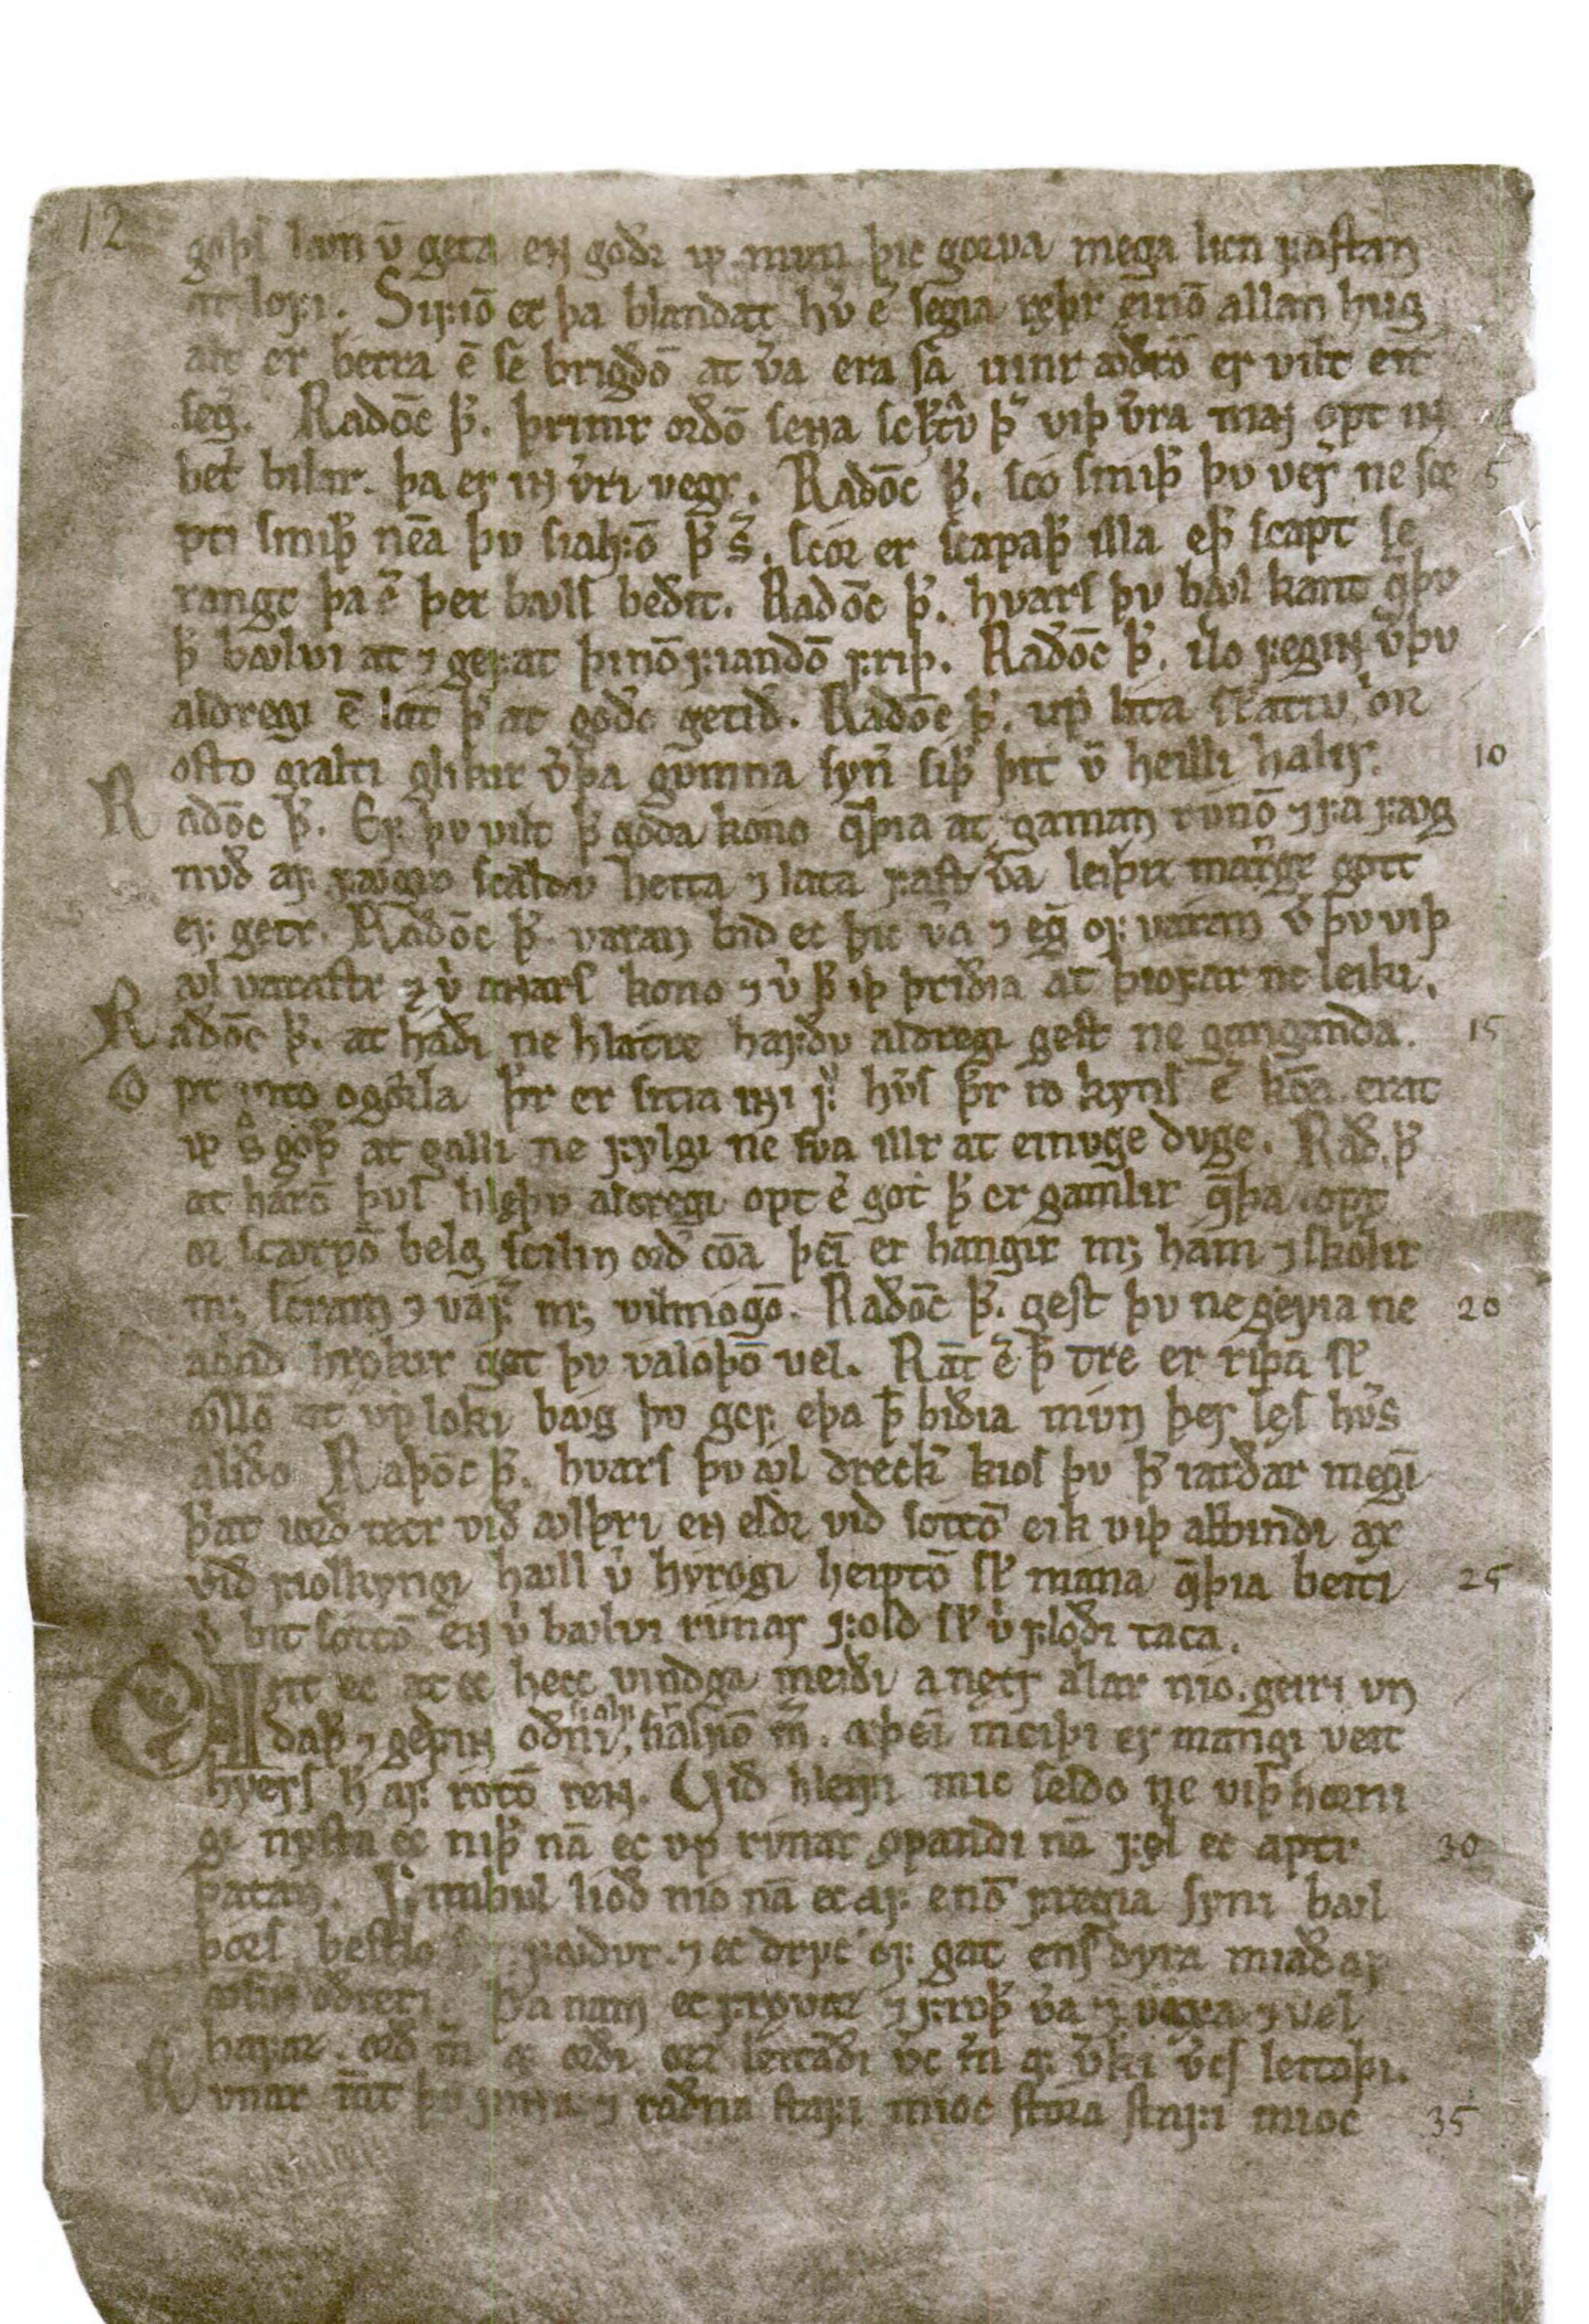 12
goþſ lavn v̄ geta en goðr mun þic gorva mega licn faſtan
at lofi. Sifiō er þa blandat hv̄ e̓ ſegia ręþr einō allan hug
alt er betra ē ſe brigðō at v̓a era ſa vinr ꜹðrō er vilt eitt
ſeg̓. Raðōc þ̓. þrimr orðō ſenna ſcl̓at̓v þ̓ viþ v̓ra man opt in
bet̓ bilar. þa er in v̓ri vegr. Raðōc þ̓. ſco ſmiþ̓ þv ver̓ ne ſce 5
pti ſmiþ̓ nēa þv ſialfō þ̓ s̓. ſcor er ſcapaþ̓ illa eþ̓ ſcapt ſe
rangt þa e̓ þer bꜹlſ beðit. Raðōc þ̓. hvarſ þv bꜹl kant q̄þv
þ̓ bꜹlvi at ⁊ gefat þinō fiandō friþ. Raðōc þ̓. illo fegin v̓þv
aldregi ē lat þ̓ at goðo getið. Raðōc þ̓. up lita ſcattv or
oſto gialti glikir v̓þa gumna ſyn̓ ſiþ̓ þit v̄ heilli halir. 10
Raðōc þ̓. Ef þv vilt þ̓ goða kono q̄þia at gaman rvnō ⁊ fa fꜹg
nvð af fꜹgro ſcaldv heita ⁊ lata faſt v̓a leiþiz mangi gott
ef getr. Raðōc þ̓. varan bið ec þic v̓a ⁊ eg̓ of varan v̓ þv viþ
ꜹl varaſtr ⁊ v̓ annarſ kono ⁊ v̓ þ̓ iþ þriðia at þiofar ne leiki.
Raðōc þ̓. at haði ne hlatri hafðv aldregi geſt ne ganganda. 15
Opt vito ogorla þ̓r er ſitia inni f̓ hv̓ſ þ̓r ro kynſ e̓ kōa erat
s̓ goþ̓ at galli ne fylgi ne ſva illr at einvge dvge. Rað. þ̓
at harō þvl hlęþv aldregi opt e̓ got þ̓ er gamlir q̄þa opt
or ſcꜹrpō belg ſcilin orð cōa þei̅ er hangir mꝫ ham ⁊ ſkollir
mꝫ ſcram ⁊ vaf̓ mꝫ vilmogō. Raðōc þ̓. geſt þv ne geyia ne 20
a grind hrǫkir get þv valoþō vel. Rāt e̓ þ̓ tre er riþa ſl̓
ꜹllō at vp loki bꜹg þv gef eþa þ̓ biðia mvn þer lęſ hv̓s
a liðo. Raþōc þ̓. hvarſ þv ꜹl dreck̓ kioſ þv þ̓ iarðar megi̅
þ̓at iorð tecr við ꜹlþri en eldr við ſottō eik viþ abbindi ax
við fiolkyngi hꜹll v̓ hyrogi heiptō ſl̓ mana q̄þia beiti 25
v̓ bit ſottō en v̓ bꜹlvi rvnar fold ſl̓ v̓ floði taca.
Veit ec at ec hecc vindga meiði a nętr allar nio. geiri vn
daþ̓ ⁊ gefin oðni, ſialfr ſialfō m̓. a þei̅ meiþi er mangi veit
hverſ h̓ af rotō renn. Við hleifi mic ſeldo ne viþ horni
gi nyſta ec niþ̓ nā ec vp rvnar ǫpandi nā fęl ec aptr 30
þatan. Fimbul lioð nio nā ec af enō frægia ſyni bꜹl
þorſ beſtlo fꜹdvr. ⁊ ec dryc of gat enſ dyra miaðar
ꜹſin oðreri. Þa nam ec frǫvaz ⁊ froþ̓ v̓a ⁊ vaxa ⁊ vel
hafaz. orð m̓ af orði orz leitaði v̓c m̓ af v̓ki v̓cſ leitaþi.
Rvnar mt þv finna ⁊ raðna ſtafi mioc ſtora ſtafi mioc 35